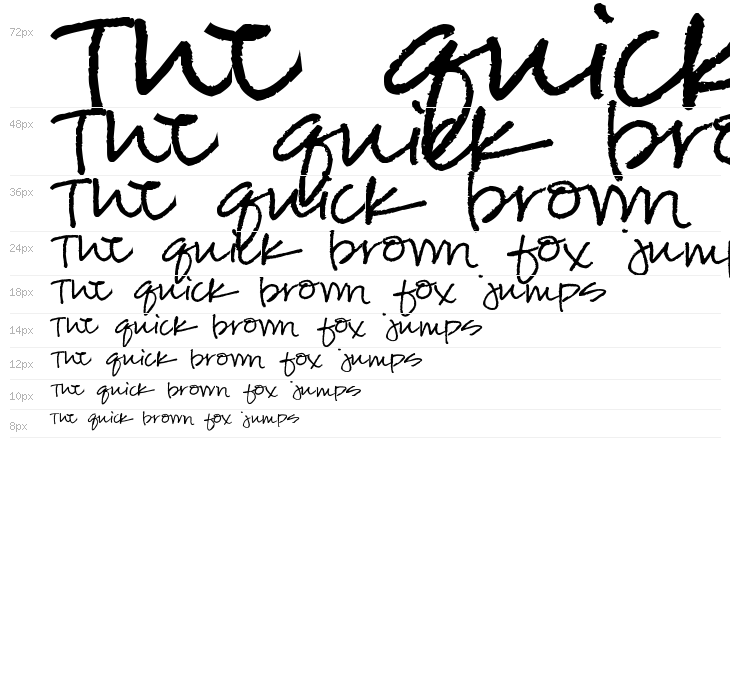 72px The quick
48px The quick bro
36px The quick brown
24px The quick brown fox jump
18px The quick brown fox jumps
14px The quick brown fox jumps
12px The quick brown fox jumps
10px The quick brown fox jumps
8px The quick brown fox jumps